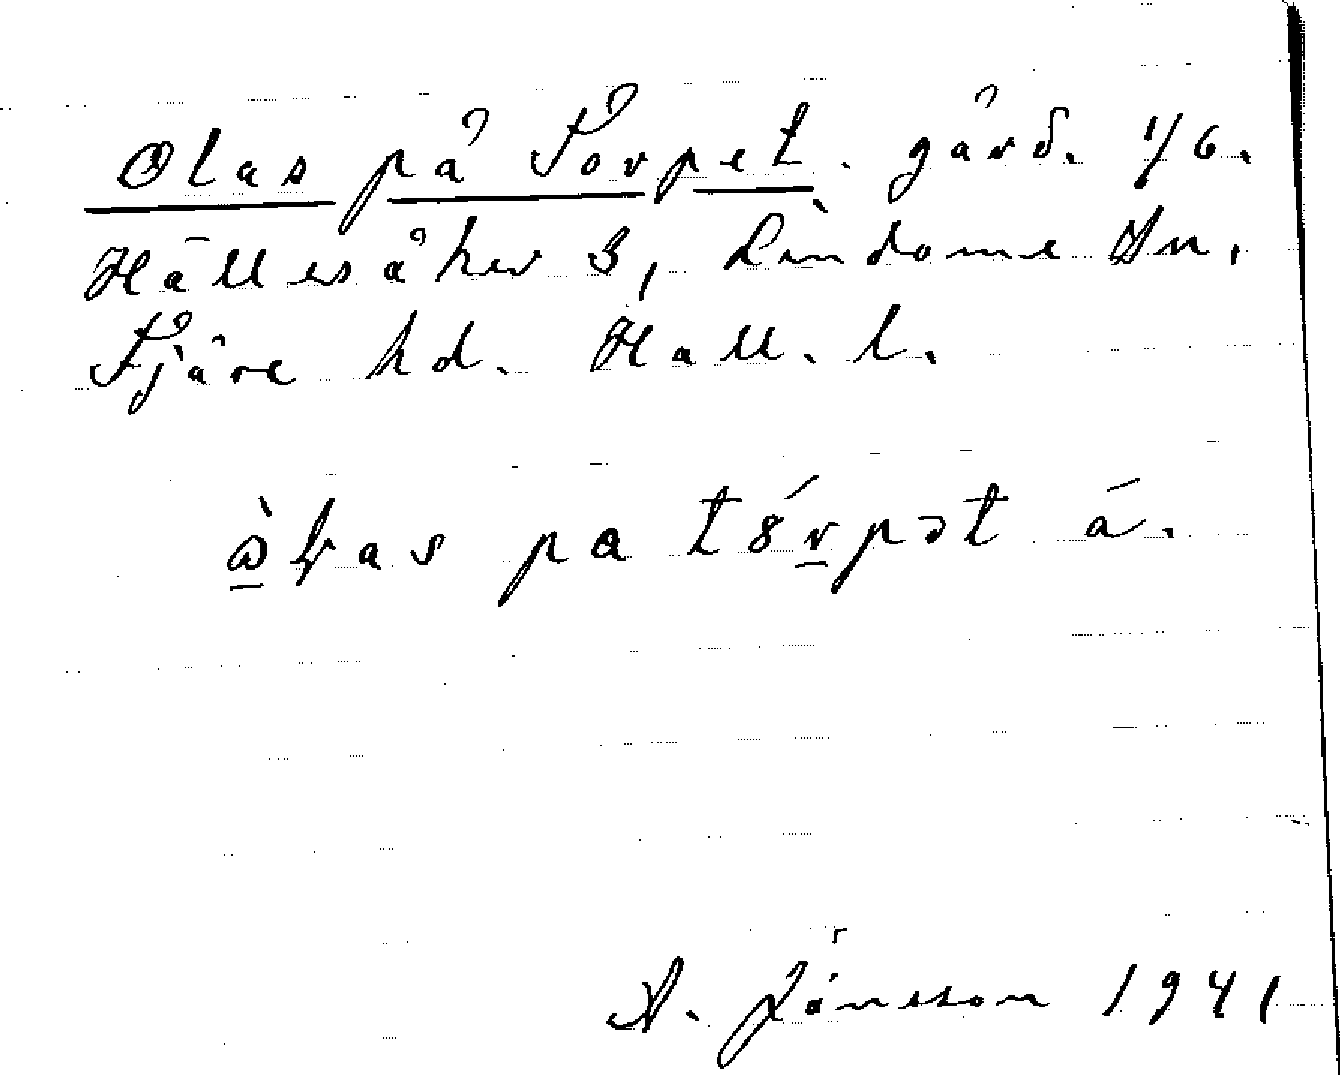 Olas på Torpet. gård. 1/6.
Hällesåker 3, Lindome sn.
Fjäre hd. Hall. l.
pa
A. Jönsson 1941